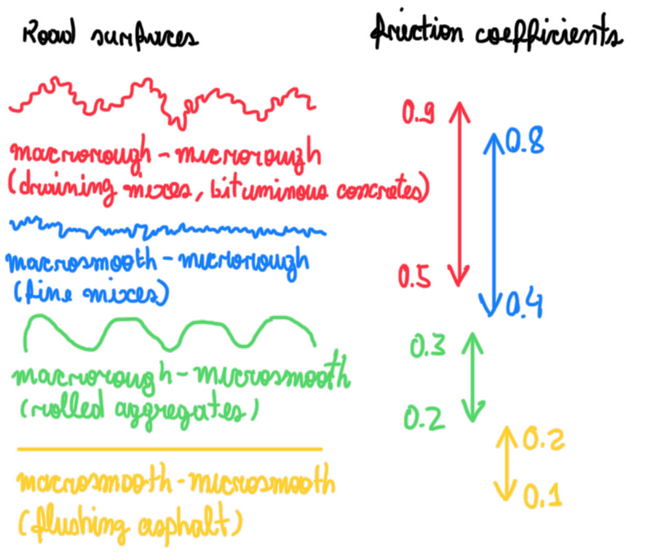 Road surfaces
friction coefficients
macrorough - microrough
(draining mixes, bituminous concretes)
0.9
0.5
0.8
0.4
macrosmooth - microrough
(fine mixes)
macrorough - microsmooth
(rolled aggregates)
0.3
0.2
macrosmooth - microsmooth
(flushing asphalt)
0.2
0.1